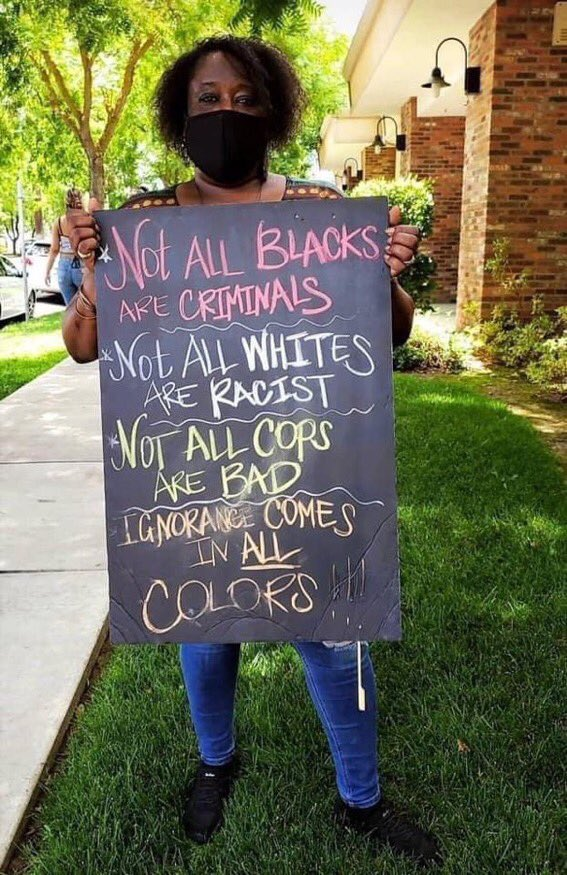 *NOT ALL BLACKS
ARE CRIMINALS
*NOT ALL WHITES
ARE RACIST
*NOT ALL COPS
ARE BAD
IGNORANCE COMES
IN ALL
COLORS !!!